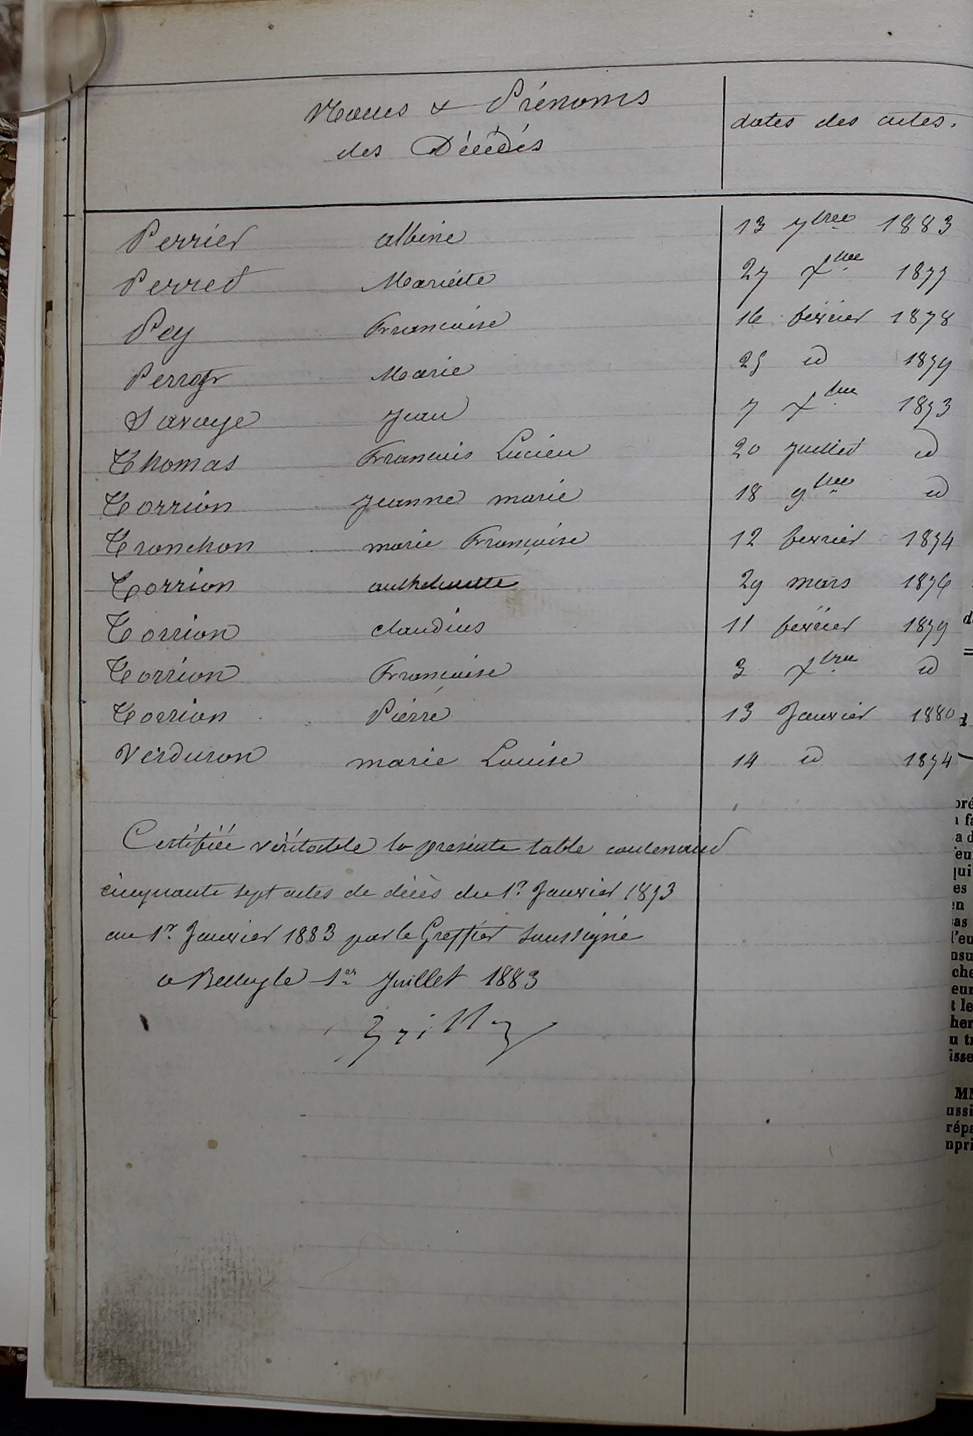 Noms & Prénoms
des Décédés
dates des actes.
Perrier albine 13 7bre 1883
Perret Mariette 27 Xbre 1877
Pey Francoise 16 février 1878
Marie 25 id 1879
Savoye Jean 7 Xbre 1873
Thomas Francois Lucien 20 Juillet id
Torrion Jeanne marie 18 9bre id
Tronchon marie Françoise 12 fevrier 1874
Torrion anthelmette 29 mars 1876
Torrion claudius 11 février 1879
Torrion Francoise 3 Xbre id
Torrion Pierre 13 Janvier 1880
Verduron marie Louise 14 id 1874
Certifiée véritable la presente table contenant
cinquante sept actes de décès du 1er Janvier 1873
au 1er Janvier 1883 par le Greffier Soussigné
a 1er Juillet 1883